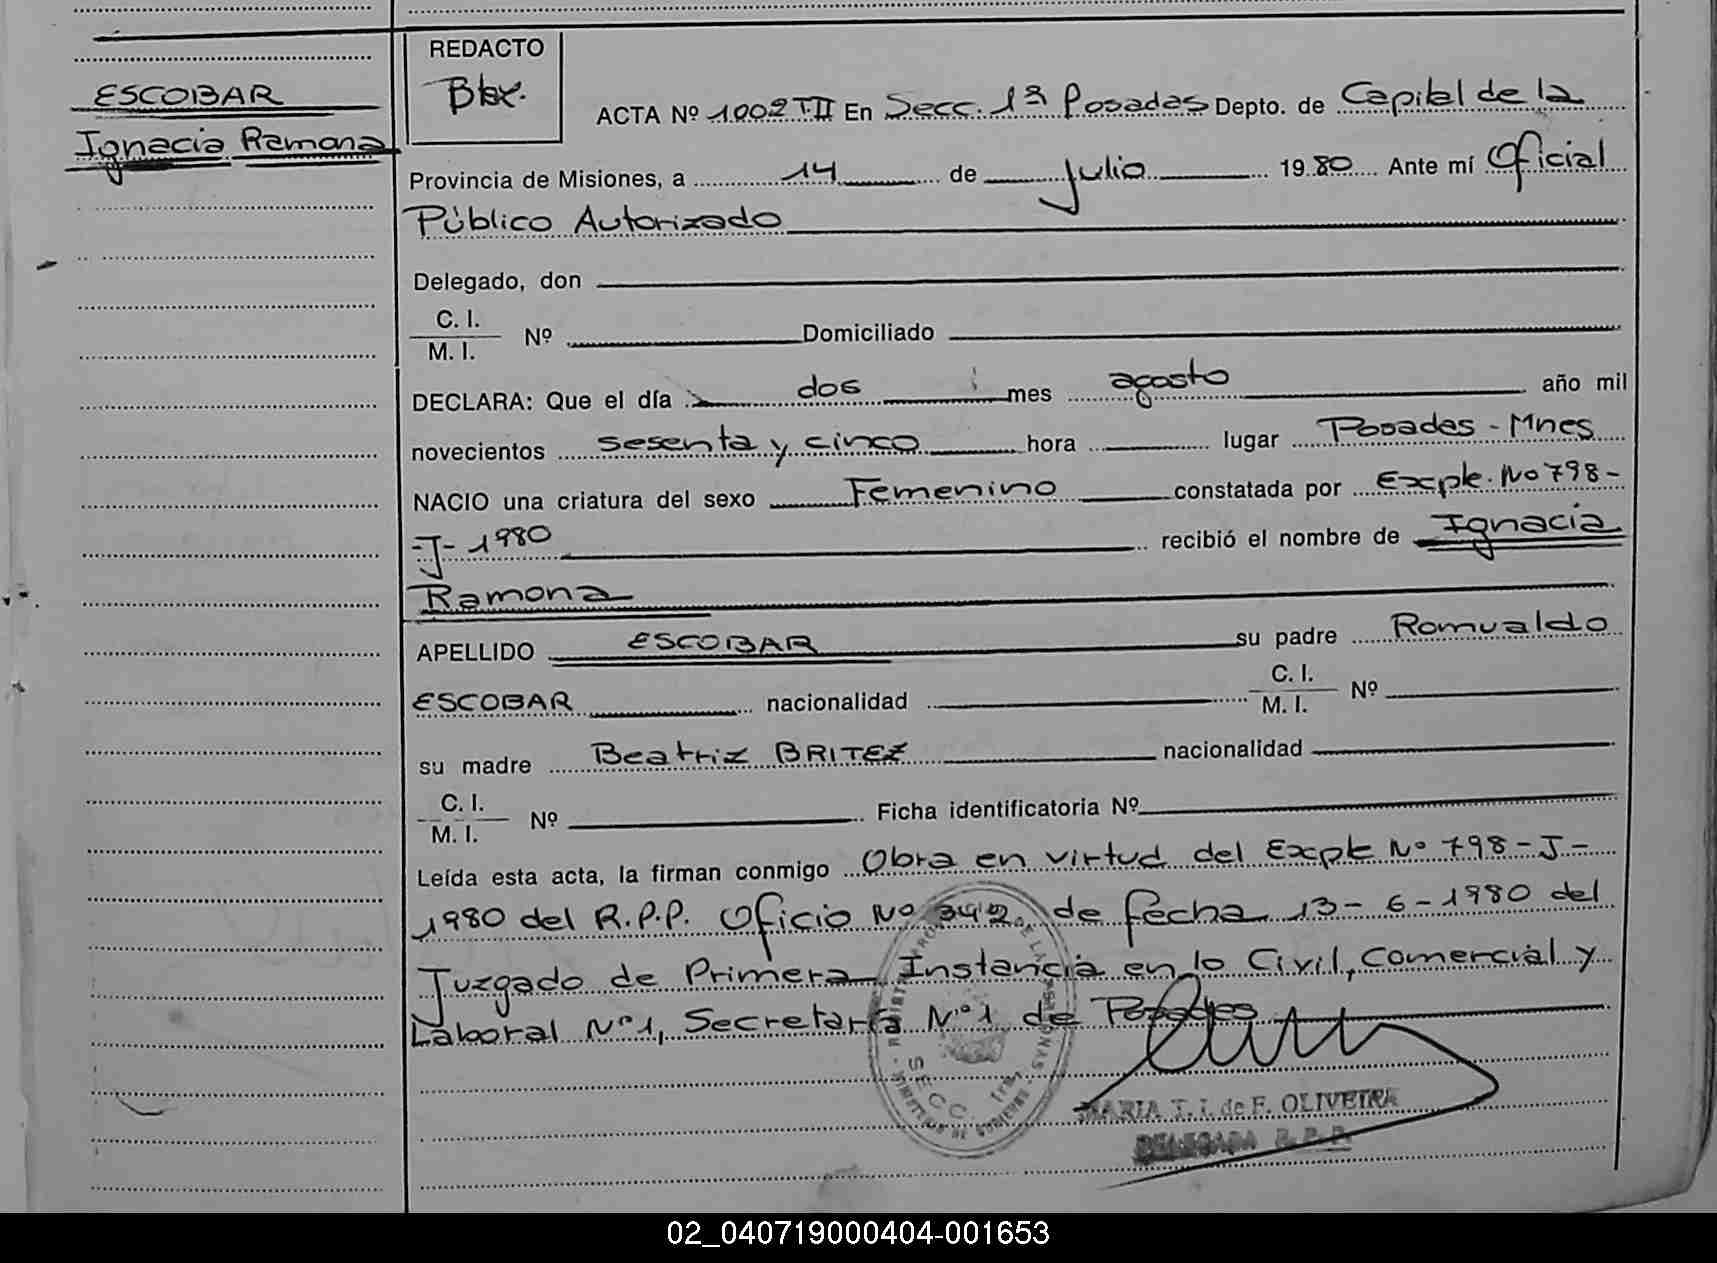 ESCOBAR
Ignacia Ramona
REDACTO
ACTA Nº 1002 TII En Secc. 1ª Posadas Depto. de Capital de la
Provincia de Misiones, a 14 de Julio 1980 Ante mí Oficial
Público Autorizado
Delegado, don
C. I.
M. I. Nº Domiciliado
DECLARA: Que el día dos mes agosto año mil
novecientos sesenta y cinco hora lugar Posadas - Mnes
NACIO una criatura del sexo Femenino constatada por Expte. No 798-
-J- 1980 recibió el nombre de Ignacia
Ramona
APELLIDO ESCOBAR su padre Romualdo
ESCOBAR nacionalidad C. I.
M. I. Nº
su madre Beatriz BRITEZ nacionalidad
C. I.
M. I. Nº Ficha identificatoria Nº
Leída esta acta, la firman conmigo Obra en virtud del Expte Nº 798-J-
1980 del R.P.P. Oficio Nº 342 de fecha 13-6-1980 del
Juzgado de Primera Instancia en lo Civil, Comercial y
Laboral Nº1, Secretaría Nº1 de Posadas
SECC. 1ra.
MARIA T. I. de F. OLIVEIRA
DELEGADA R. P. P.
02_040719000404-001653